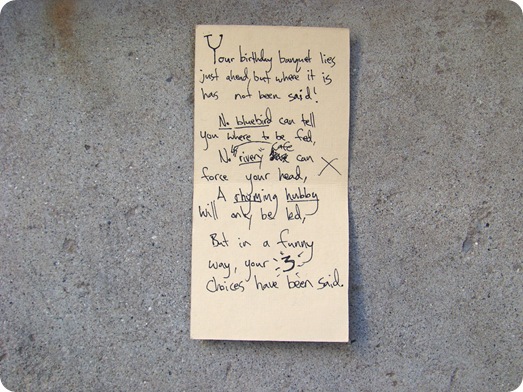 Your birthday banquet lies
just ahead, but where it is
has not been said!
No bluebird can tell
you where to be fed,
No rivery cafe can
force your head,
A rhyming hubby
will only be led,
But in a funny
way, your 3
choices have been said.